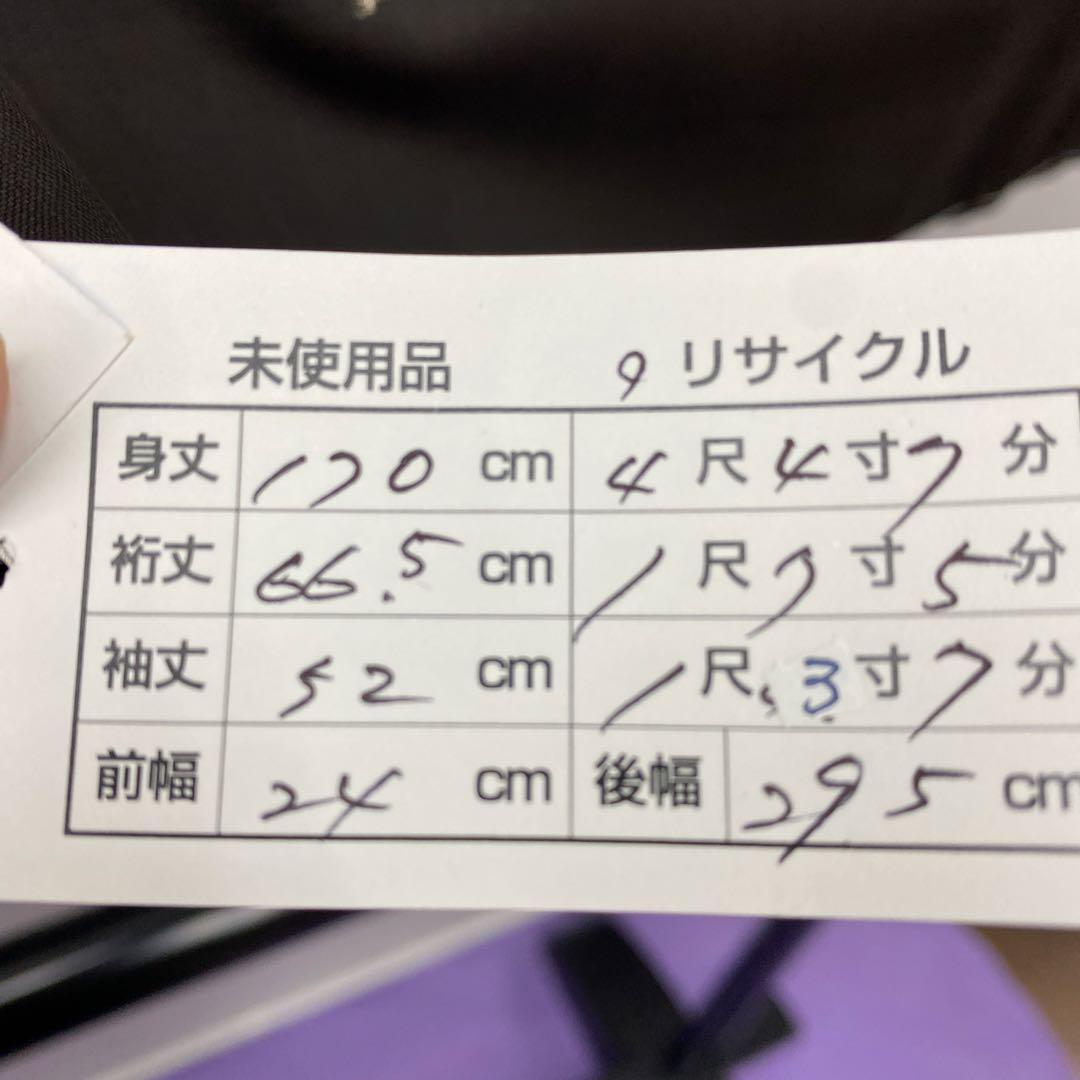 未使用品 9 リサイクル
身丈 170 cm 4 尺 4 寸 7 分
裄丈 66.5 cm 1 尺 7 寸 5 分
袖丈 52 cm 1 尺 3 寸 7 分
前幅 24 cm 後幅 29 5 cm